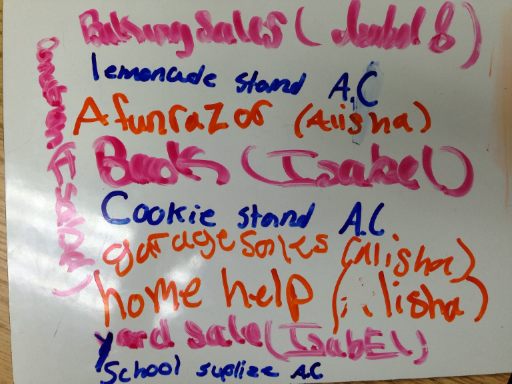 Baking Sales (
lemonade stand A.C
A funrazor (Alisha)
Book (Isabel)
Cookie stand A.C
garage sales (Alisha)
home help (Alisha)
yard sale (IsabEl)
School suplize A.C